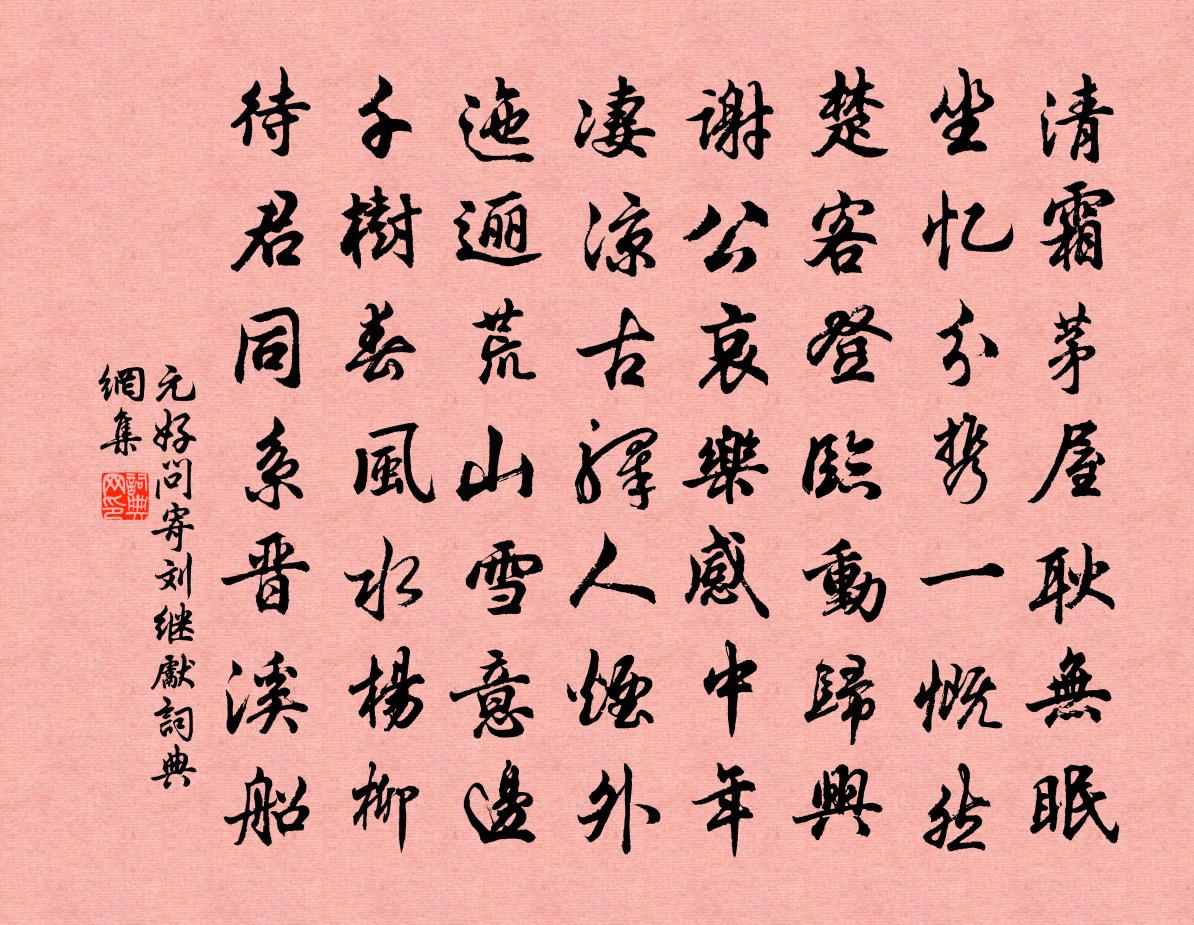 清霜茅屋耿無眠
坐忆分携一慨然
楚客登臨動歸興
謝公哀樂感中年
凄涼古驛人煙外
迤逦荒山雪意邊
千樹春風水楊柳
待君同系晋溪船
元好问寄刘继獻詞典
網集
詞典
网印